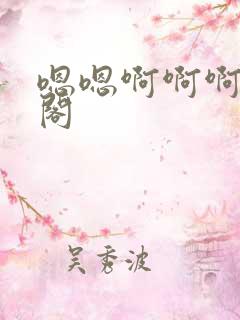 嗯嗯啊啊啊
阁
吴秀波